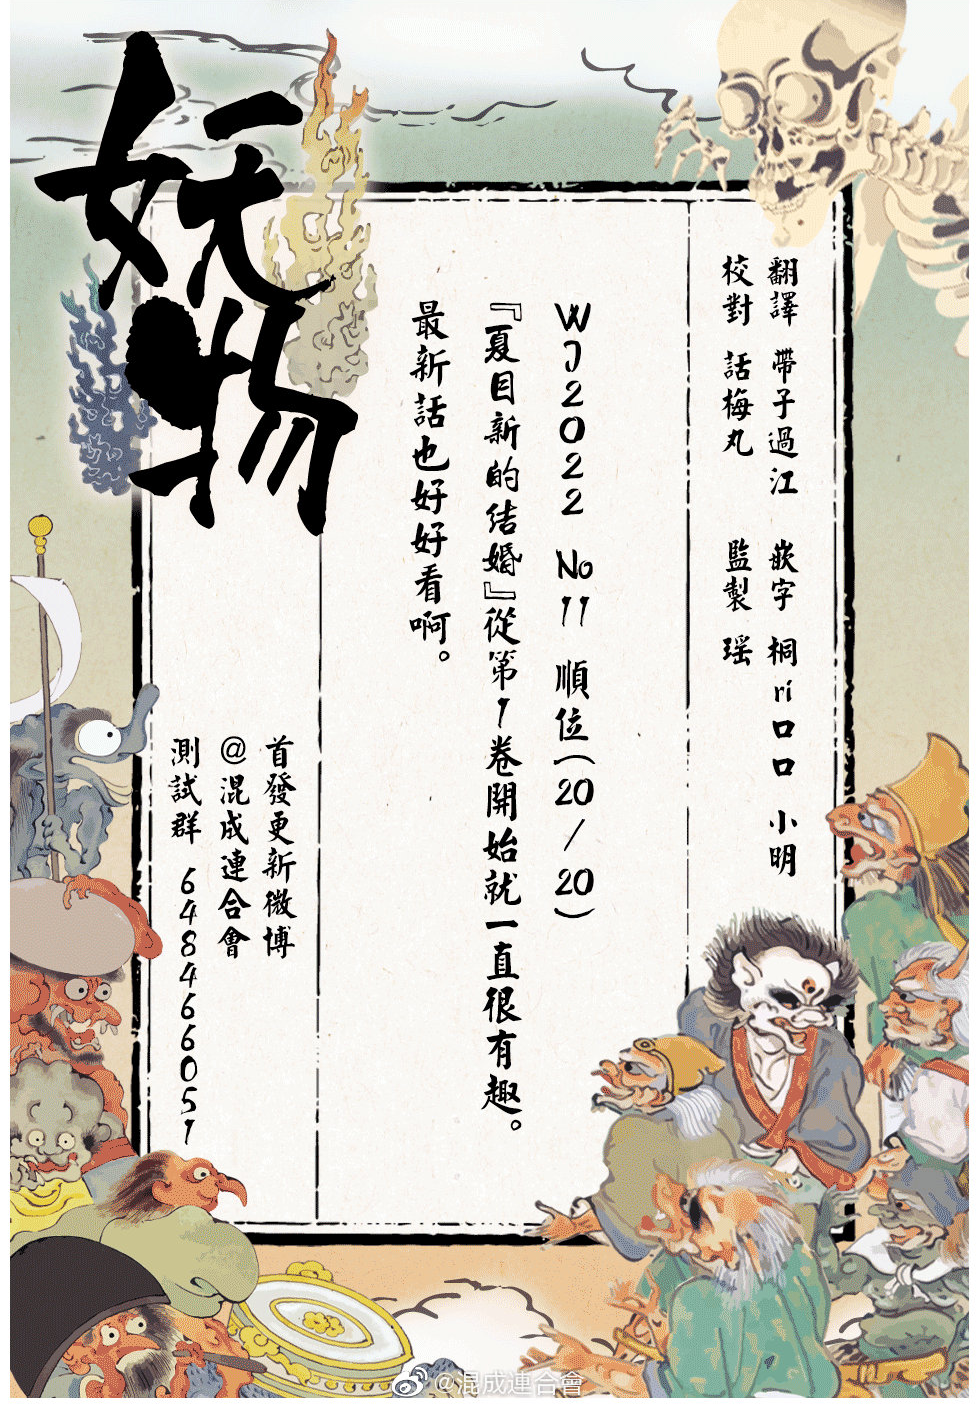 妖物
翻譯 帶子過江 嵌字 桐ri口口 小明
校對 話梅丸 監製 瑶
WJ2022 No11 順位(20/20)
『夏目新的结婚』從第1卷開始就一直很有趣。
最新話也好好看啊。
首發更新微博
@混成連合會
測試群 648466051
@混成連合會